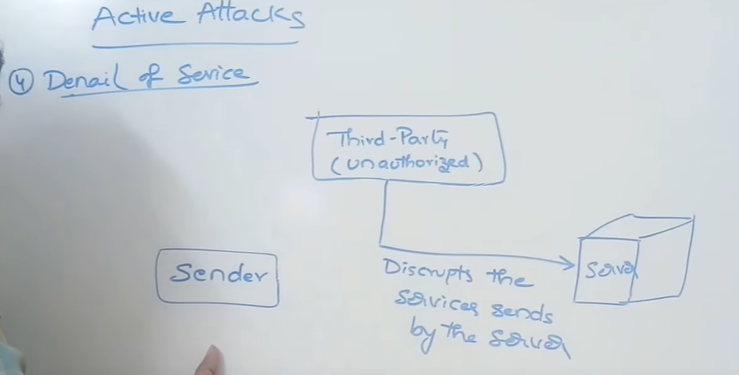 Active Attacks
④ Denail of Service
Third-Party
(unauthorized)
Sender
Server
Discrupts the
services sends
by the server